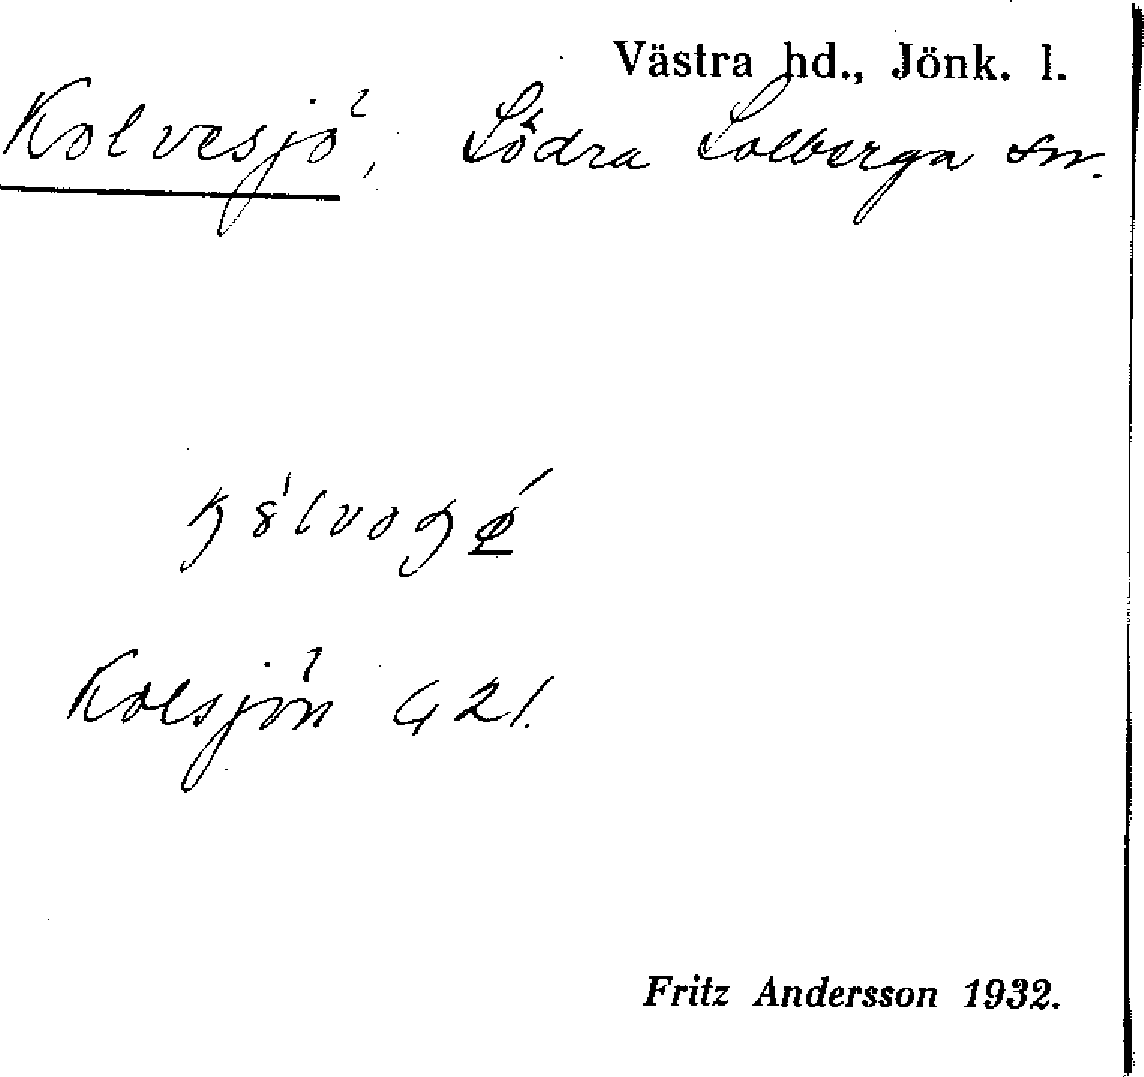 Västra hd., Jönk. l.
Kolvesjö, Södra Solberga sn.
Kolsjön G 21.
Fritz Andersson 1932.